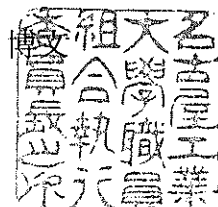 博文
名古屋工業
大學職員
組合執行
委員長之印